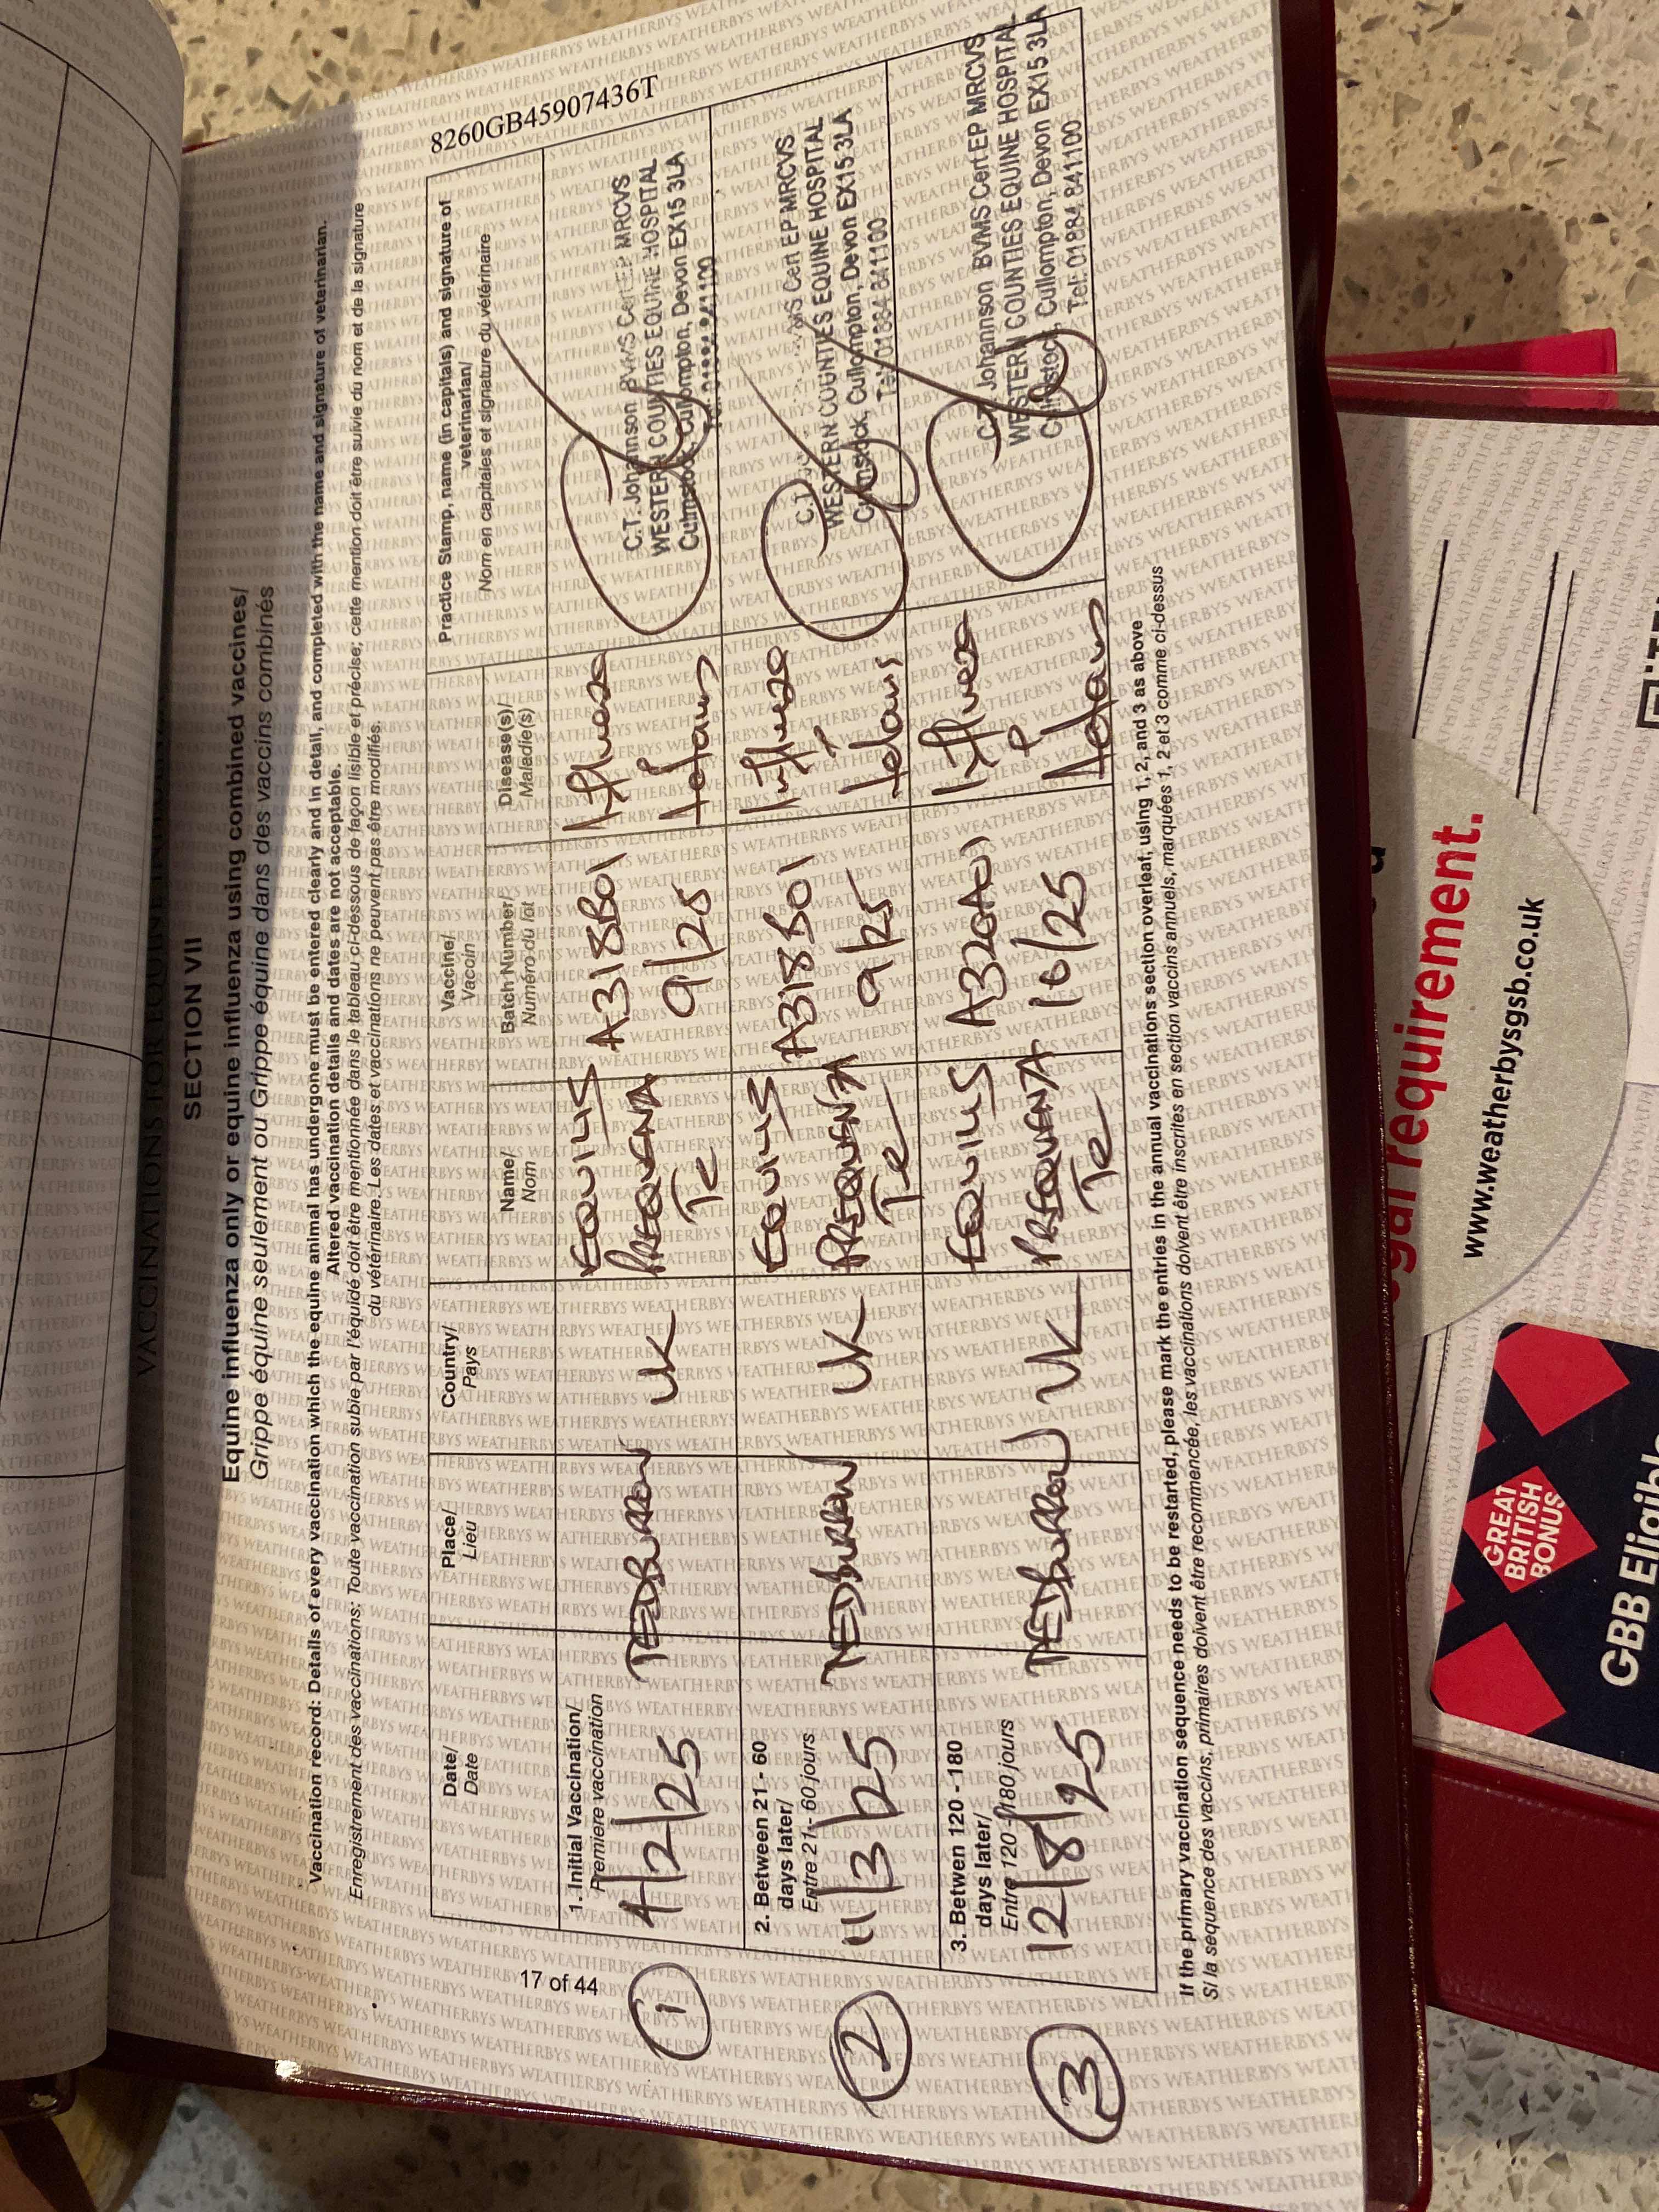 VACCINATIONS FOR EQUINE INFLUENZA
8260GB45907436T
SECTION VII
Equine influenza only or equine influenza using combined vaccines/
Grippe équine seulement ou Grippe équine dans des vaccins combinés
Vaccination record: Details of every vaccination which the equine animal has undergone must be entered clearly and in detail, and completed with the name and signature of veterinarian.
Altered vaccination details and dates are not acceptable.
Enregistrement des vaccinations: Toute vaccination subie par l'équidé doit être mentionnée dans le tableau ci-dessous de façon lisible et précise; cette mention doit être suivie du nom et de la signature
du vétérinaire. Les dates et vaccinations ne peuvent pas être modifiés.
Date/
Date
Place/
Lieu
Country/
Pays
Vaccine/
Vaccin
Name/
Nom
Batch Number/
Numéro du lot
Disease(s)/
Maladie(s)
Practice Stamp, name (in capitals) and signature of
veterinarian/
Nom en capitales et signature du vétérinaire
1. Initial Vaccination/
Premiere vaccination
4/2/25
TEDBURROW
UK
EQUILIS
PREQUENZA
Te
A318B01
9/25
Influenza
&
Tetanus
C.T. Johannson BVMS CertEP MRCVS
WESTERN COUNTIES EQUINE HOSPITAL
Culmstock, Cullompton, Devon EX15 3LA
Tel: 01884 841100
2. Between 21 - 60
days later/
Entre 21 - 60 jours
11/3/25
TEDBURROW
UK
EQUILIS
PREQUENZA
Te
A318B01
9/25
Influenza
&
Tetanus
C.T.
Cert EP MRCVS
WESTERN COUNTIES EQUINE HOSPITAL
Culmstock, Cullompton, Devon EX15 3LA
Tel: 01884 841100
3. Betwen 120 - 180
days later/
Entre 120 - 180 jours
12/8/25
TEDBURROW
UK
EQUILIS
PREQUENZA
Te
A320A01
10/25
Influenza
&
Tetanus
C.T. Johannson BVMS CertEP MRCVS
WESTERN COUNTIES EQUINE HOSPITAL
Culmstock, Cullompton, Devon EX15 3LA
Tel: 01884 841100
If the primary vaccination sequence needs to be restarted, please mark the entries in the annual vaccinations section overleaf, using 1, 2, and 3 as above
Si la sequence des vaccins, primaires doivent être recommencée, les vaccinations doivent être inscrites en section vaccins annuels, marquées 1, 2 et 3 comme ci-dessus
17 of 44
1
2
3
legal requirement.
www.weatherbysgsb.co.uk
GREAT
BRITISH
BONUS
GBB Eligible